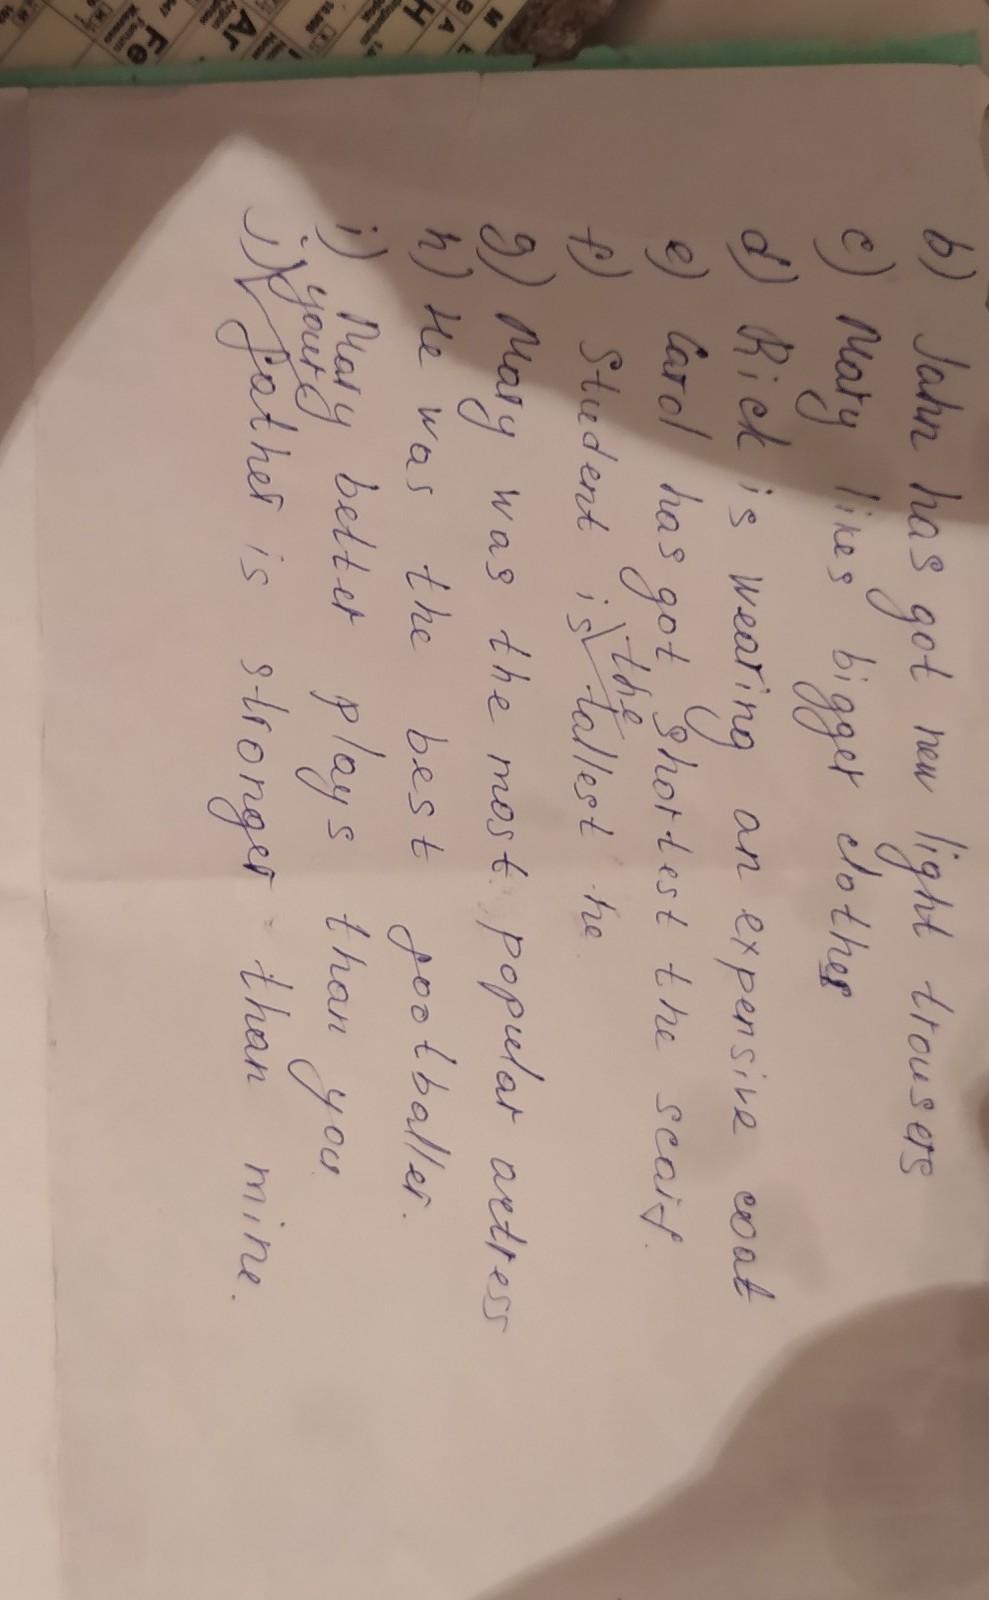 b) John has got new light trousers
c) Mary likes bigger clothes
d) Rick is wearing an expensive coat
e) Carol has got shortest the scarf.
f) Student is the tallest he
g) Mary was the most popular actress
h) He was the best footballer.
i) Mary better plays than you
j) your father is stronger than mine.
Fe
Ar
H